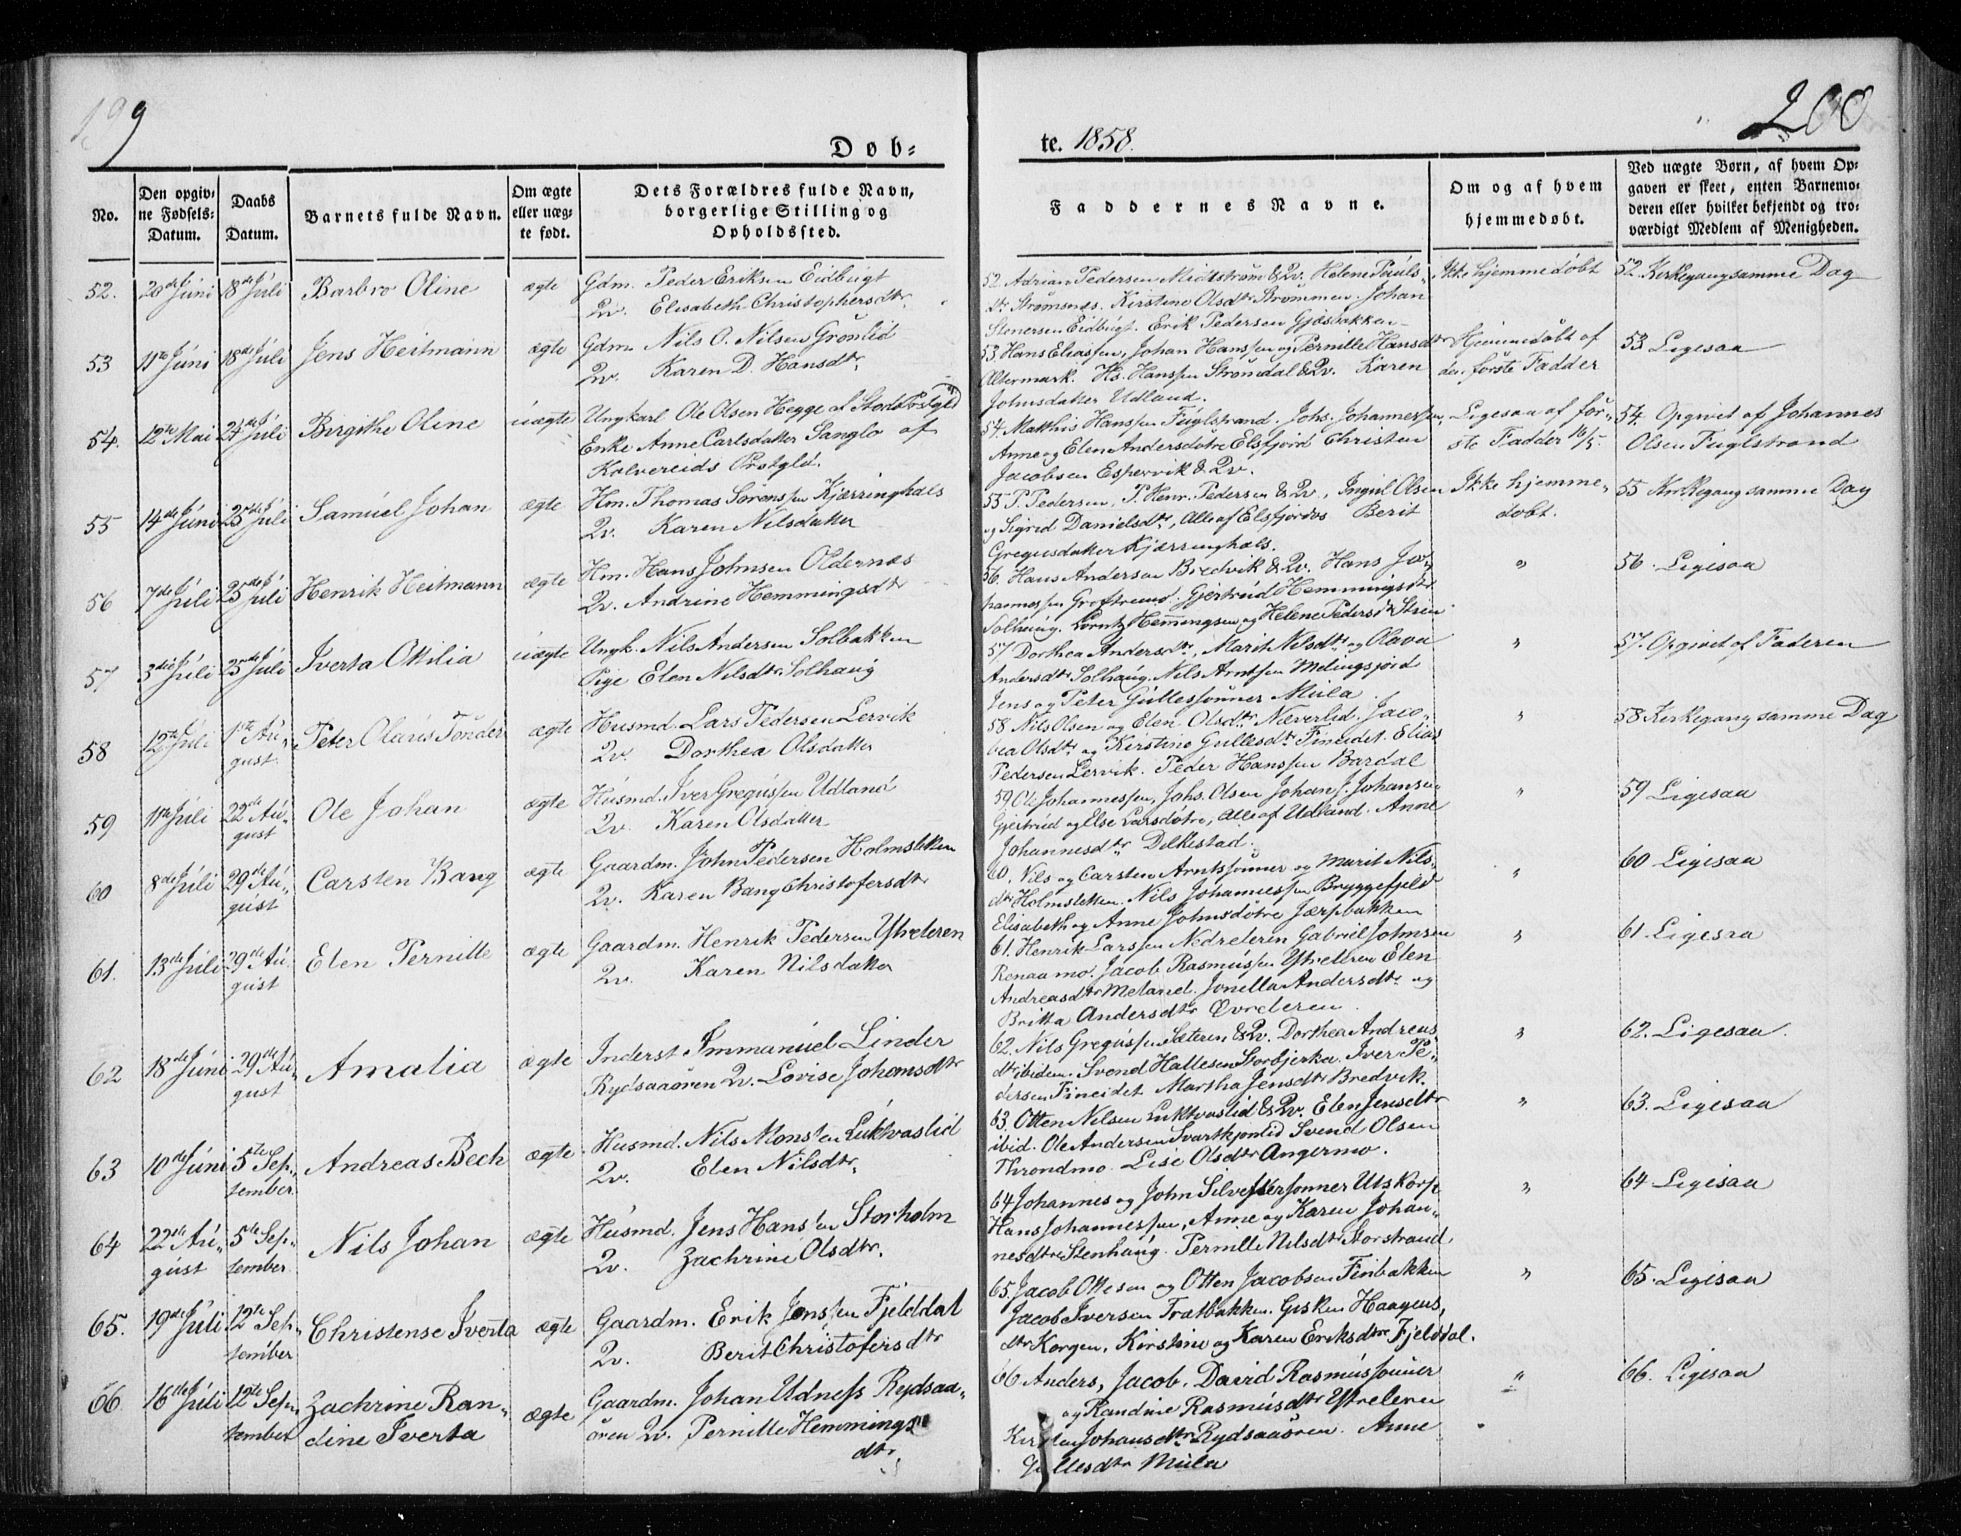 199
200
Døb-
te. 1858.
No.
Den opgiv-
ne Fødsels-
Datum.
Daabs
Datum.
Barnets fulde Navn.
Om ægte
eller uæg-
te født.
Dets Forældres fulde Navn,
borgerlige Stilling og
Opholdssted.
Faddernes Navne.
Om og af hvem
hjemmedøbt.
Ved uægte Børn, af hvem Op-
gaven er skeet, enten Barnemo-
deren eller hvilket bekjendt og tro-
værdigt Medlem af Menigheden.
52. 20de Juni 18de Juli Barbro Oline ægte Gdm. Peder Eriksen Eidbugt
2v. Elisabeth Christophersdtr.
52. Adrian Pedersen Midtstrøm & 2v. Helene Pauls-
dtr Strømsnes. Kirstine Olsdtr Strømmen. Johan
Stenersen Eidbugt. Erik Pedersen Gjøsbakken
Ikke hjemmedøbt
52. Kirkegang samme Dag
53 11te Juni 18de Juli Jens Heitmann ægte Gdm. Nils O. Nilsen Grønlid
2v. Karen D. Hansdtr.
53. Hans Eliassen, Johan Hanssen og Pernille Hansdtr
Altermark. Hs. Hanssen Strømdal & 2v. Karen
Johnsdatter Udland.
Hjemmedøbt af
den første Fadder
53 Ligesaa
54. 12te Mai 24de Juli Birgithe Oline uægte Ungkarl Ole Olsen Hegge af Stods Prstgld
Enke Anne Carlsdatter Sanglo af
Kolvereids Prstgld.
54. Matthis Hanssen Fuglstrand. Johs. Johannessen,
Anne og Elen Andersdøtre Elsfjord Christen
Jacobsen Espervik & 2v.
Ligesaa af før-
ste Fadder 16/5.
54. Opgivet af Johannes
Olsen Fuglstrand
55 14de Juni 25de Juli Samuel Johan ægte Hm. Thomas Sørenssen Kjærringhals
2v. Karen Nilsdatter
55 P. Pedersen, P. Henr. Pedersen & 2v., Ingul Olsen
og Sigrid Danielsdtr, Alle af Elsfjordos Berit
Gregusdatter Kjærringhals.
Ikke hjemme-
døbt.
55 Kirkegang samme Dag
56 7de Juli 25de Juli Henrik Heitmann ægte Hm. Hans Johnsen Oldernæs
2v. Andrine Hemmingsdtr
56. Hans Andersen Bredvik & 2v. Hans Jo-
hannessen Grøftrend. Gjertrud Hemmingsdtr
Solhaug. Lorntz Hemmingsen og Helene Pedersdtr
"
56. Ligesaa
57 3die Juli 25de Juli Iverta Otilia uægte Ungk. Nils Andersen Solbakken
Pige Elen Nilsdtr Solhaug
57 Dorthea Andersdtr, Marit Nilsdtr og Olava
Andersdtr Solhaug. Nils Arntsen Melingsjord
Jens og Peter Gullessønner Mula.
"
57. Opgivet af Faderen
58 12te Juli 1ste Au-
gust. Peter Olaus Tønder ægte Husmd. Lars Pedersen Lervik
2v. Dorthea Olsdatter
58 Nils Olsen og Elen Olsdtr Næverlid. Jaco-
bea Olsdtr og Kirstine Gullesdtr Fineidet. Elias
Pedersen Lervik. Peder Hanssen Bardal
"
58 Kirkegang samme Dag
59 11te Juli 22de Au-
gust Ole Johan ægte Husmd. Iver Gregussen Udland
2v. Karen Olsdatter
59 Ole Johannessen, Johs. Olsen Johan J. Johansen
Gjertrud og Else Larsdøtre, Alle af Udland. Anne
Johannesdtr Dilkestad.
"
59 Ligesaa
60 8de Juli 29de Au-
gust Carsten Bang ægte Gaardm. John Pedersen Holmsletten
2v. Karen Bang Christofersdtr
60. Nils og Carsten Arntssønner og Marit Nils-
dtr Holmsletten. Nils Johannessen Bryggefjeld
Elisabeth og Anne Johnsdøtre Jærpbakken
"
60 Ligesaa
61. 13de Juli 29de Au-
gust Elen Pernille ægte Gaardm. Henrik Pedersen Ytreleren
2v. Karen Nilsdatter
61. Henrik Larssen Nedreleren Gabriel Johnsen
Renaamo. Jacob Rasmussen Ytreleren Elen
Andreasdtr Meland. Jonella Andersdtr og
Britta Andersdtr Øvreleren
"
61 Ligesaa
62 18de Juni 29de Au-
gust Amalia ægte Inderst Immanuel Linder
Rydsaaøren 2v. Lovise Johansdtr
62. Nils Gregussen Sæteren & 2v. Dorthea Andreas-
dtr ibidem. Svend Hallesen Storbjerka. Iver Pe-
dersen Fineidet Martha Jensdtr Bredvik.
"
62. Ligesaa.
63 10de Juni 5te Sep-
tember Andreas Bech ægte. Husmd. Nils Monsen Luktvaslid
2v. Elen Nilsdtr.
63. Otten Nilsen Luktvaslid & 2v. Elen Jensdtr
ibid. Ole Andersen Svarttjønlid Svend Olsen
Throndmo. Lise Olsdtr Angermo.
"
63. Ligesaa
64 22de Au-
gust 5te Sep-
tember Nils Johan ægte Husmd. Jens Hansen Storholm
2v. Zachrine Olsdtr.
64 Johannes og John Silvestersønner Utskorpe
Hans Johannessen, Anne og Karen Johan-
nesdtre Stenhaug. Pernille Nilsdtr Storstrand
"
64 Ligesaa
65. 19de Juli 12te Sep-
tember Christense Iverta ægte Gaardm. Erik Jonssen Fjelddal
2v. Berit Christofersdtr
65. Jacob Ottesen og Otten Jacobsen Finbakken
Jacob Iversen Tratbakken. Gisken Haagens-
dtr Korgen, Kirstine og Karen Eriksdtre Fjelddal.
"
65. Ligesaa
66 16de Juli 12te Sep-
tember Zachrine Ran-
dine Iverta ægte Gaardm. Johan Udness Rydsaa-
øren 2v. Pernille Hemmings-
dtr.
66 Anders, Jacob, David Rasmussønner
og Randine Rasmusdtr Ytreleren
Kirsten Johansdtr Rydsaaøren. Anne
Gullesdtr Mula
"
66. Ligesaa